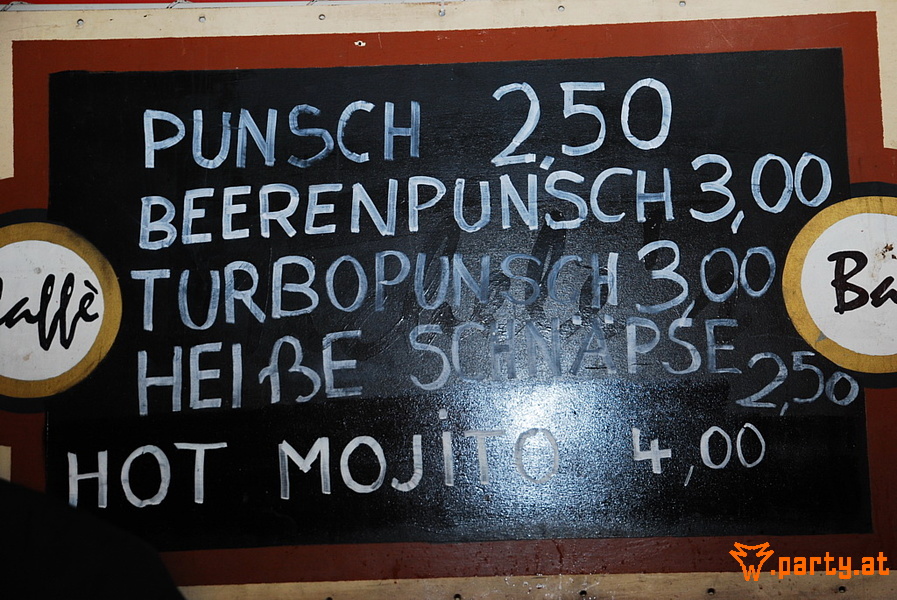 PUNSCH 2,50
BEERENPUNSCH 3,00
TURBOPUNSCH 3,00
HEIßE SCHNÄPSE 2,50
HOT MOJiTO 4,00
affè
Bà
W.party.at